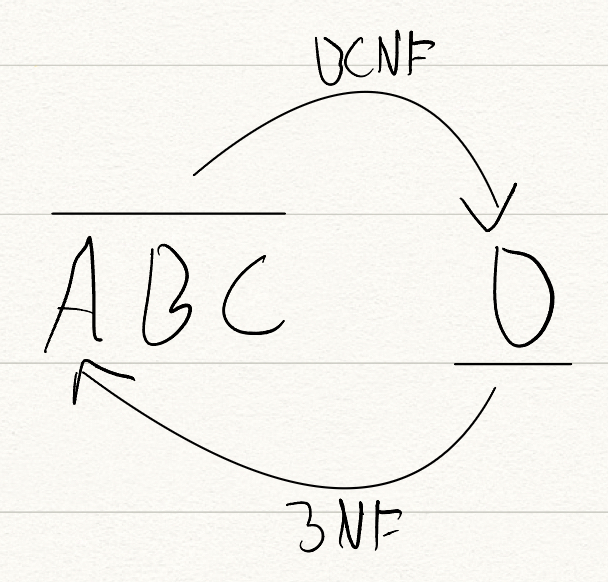 BCNF
A B C D
3NF